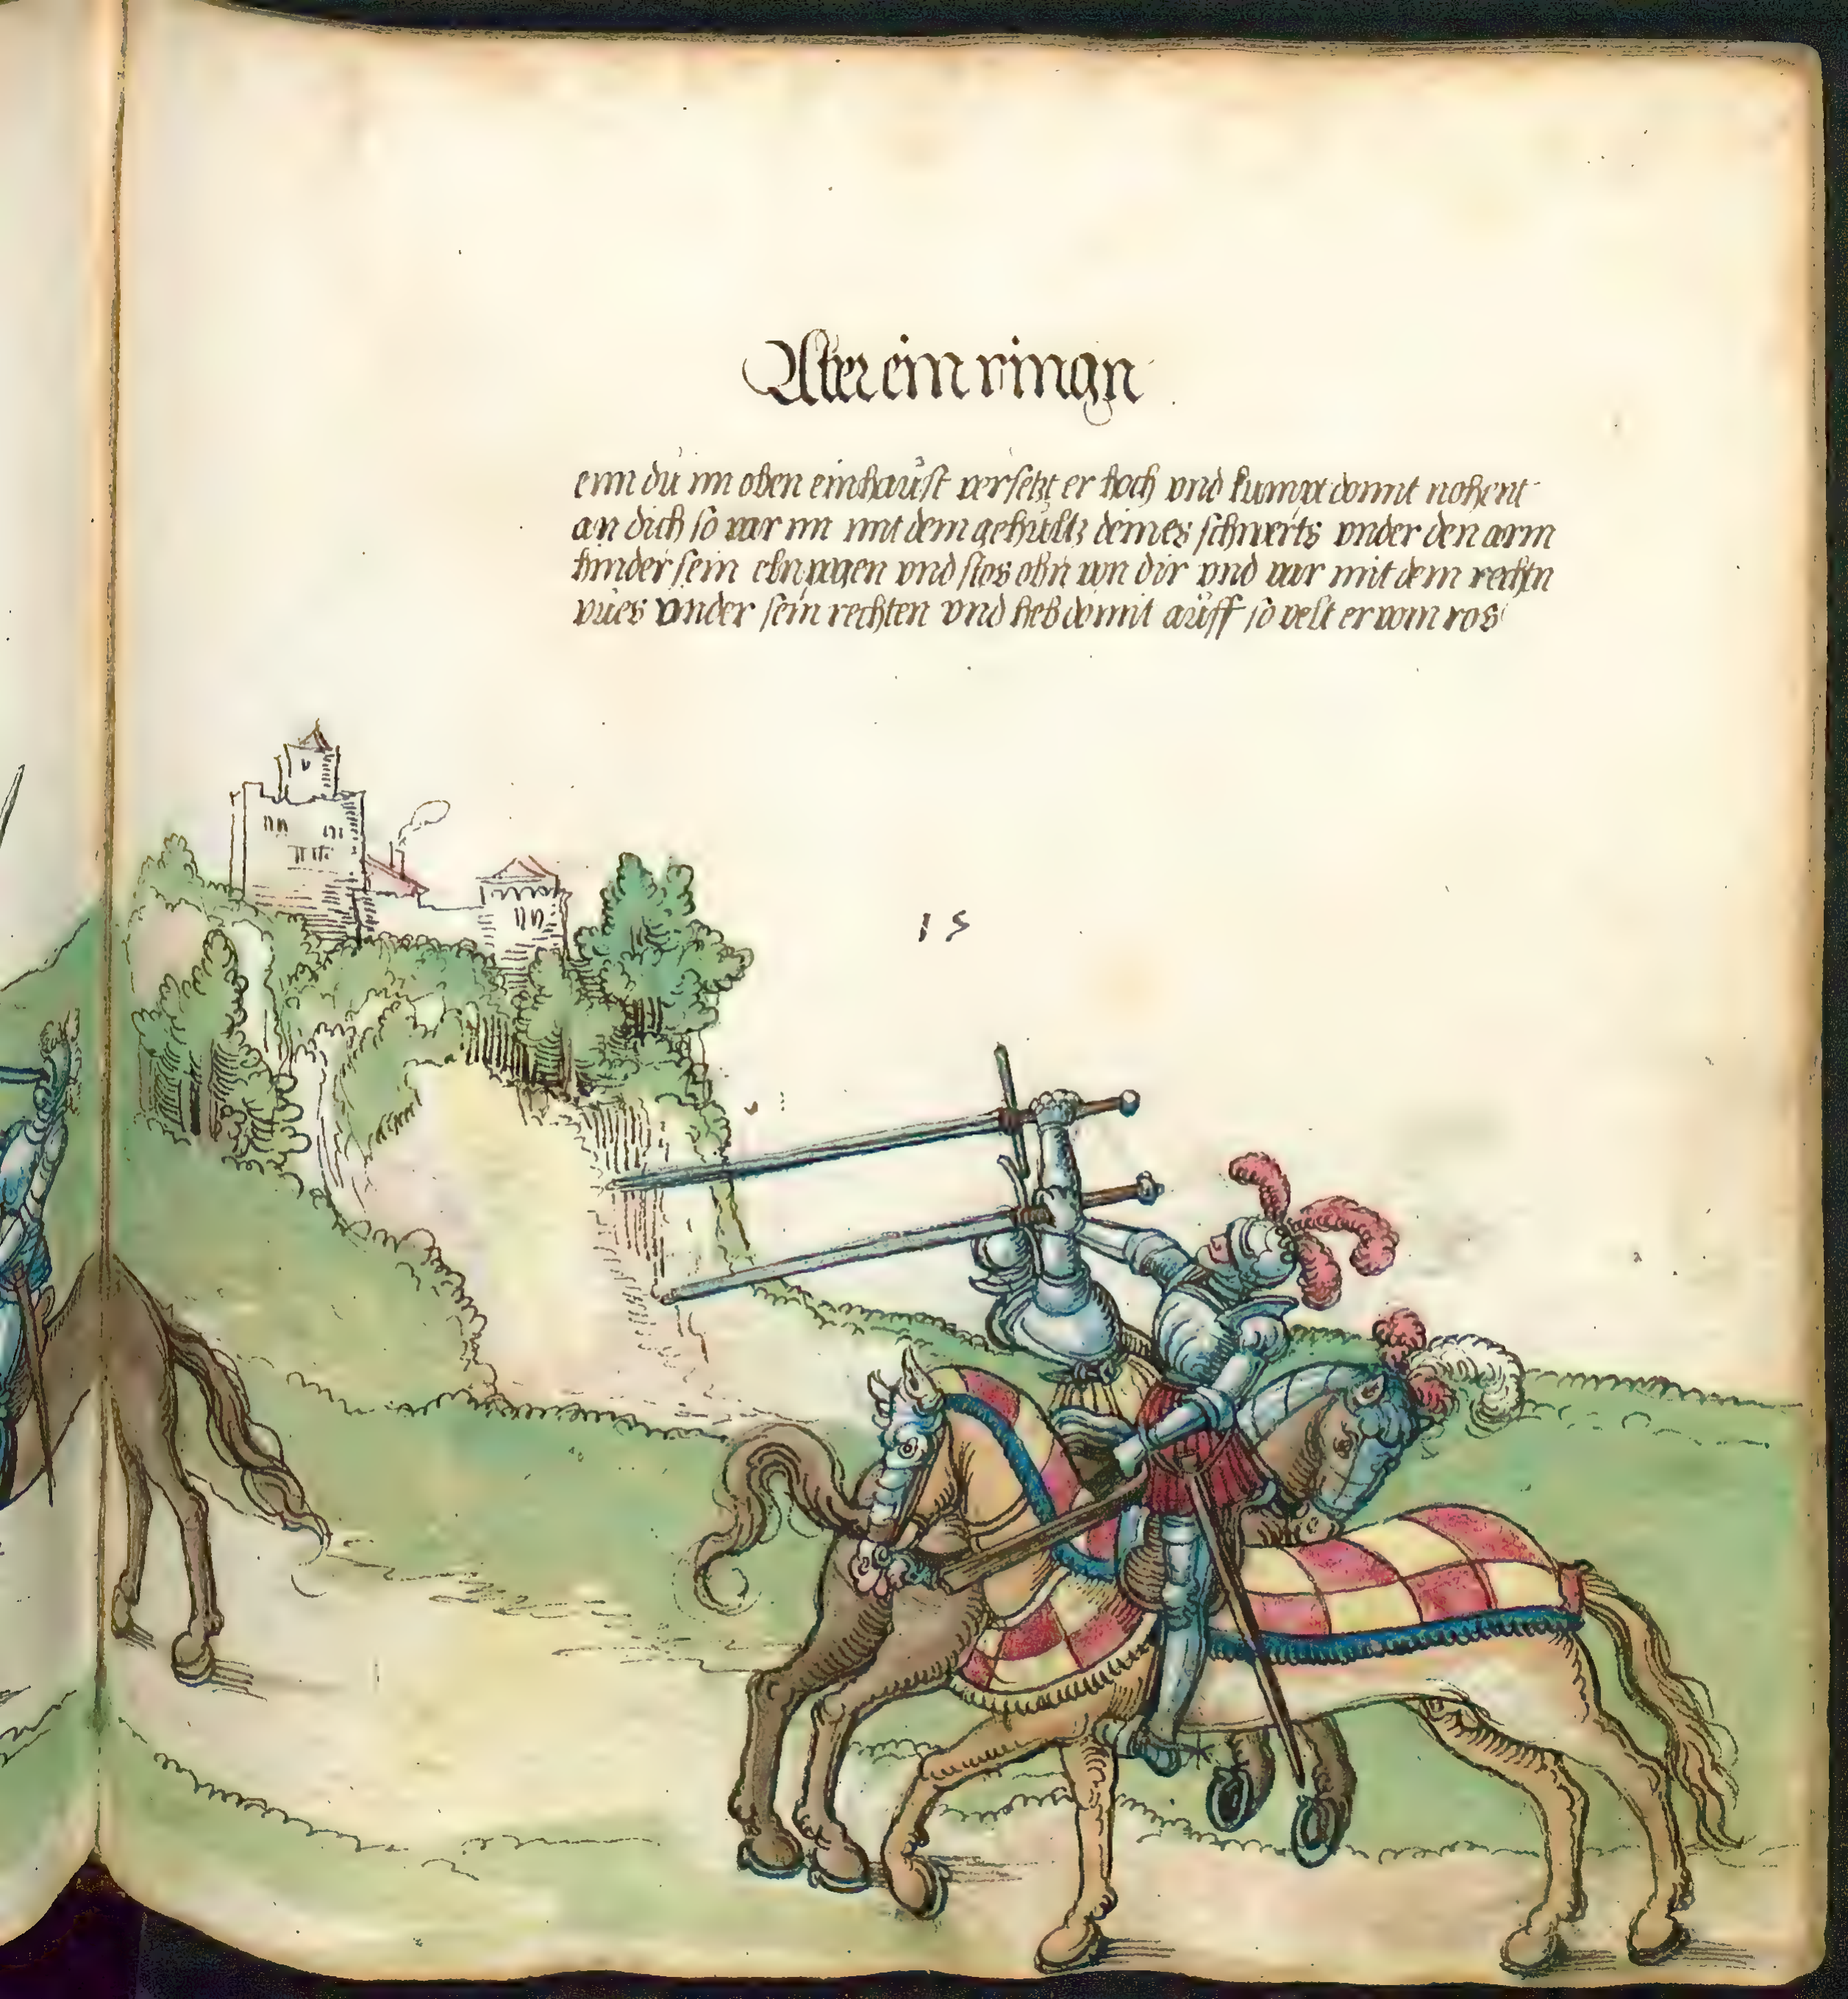 Aber ein ringn
enn du im oben einhaust versetzt er hoch vnd kumpt domit nohent
an dich so var im mit dem gehültz deines schwerts vnder den arm
hinder sein elnpogen vnd stos ohn von dir vnd var mit dem rechtn
vües vnder sein rechten vnd heb domit aüff so velt er vom ros
15